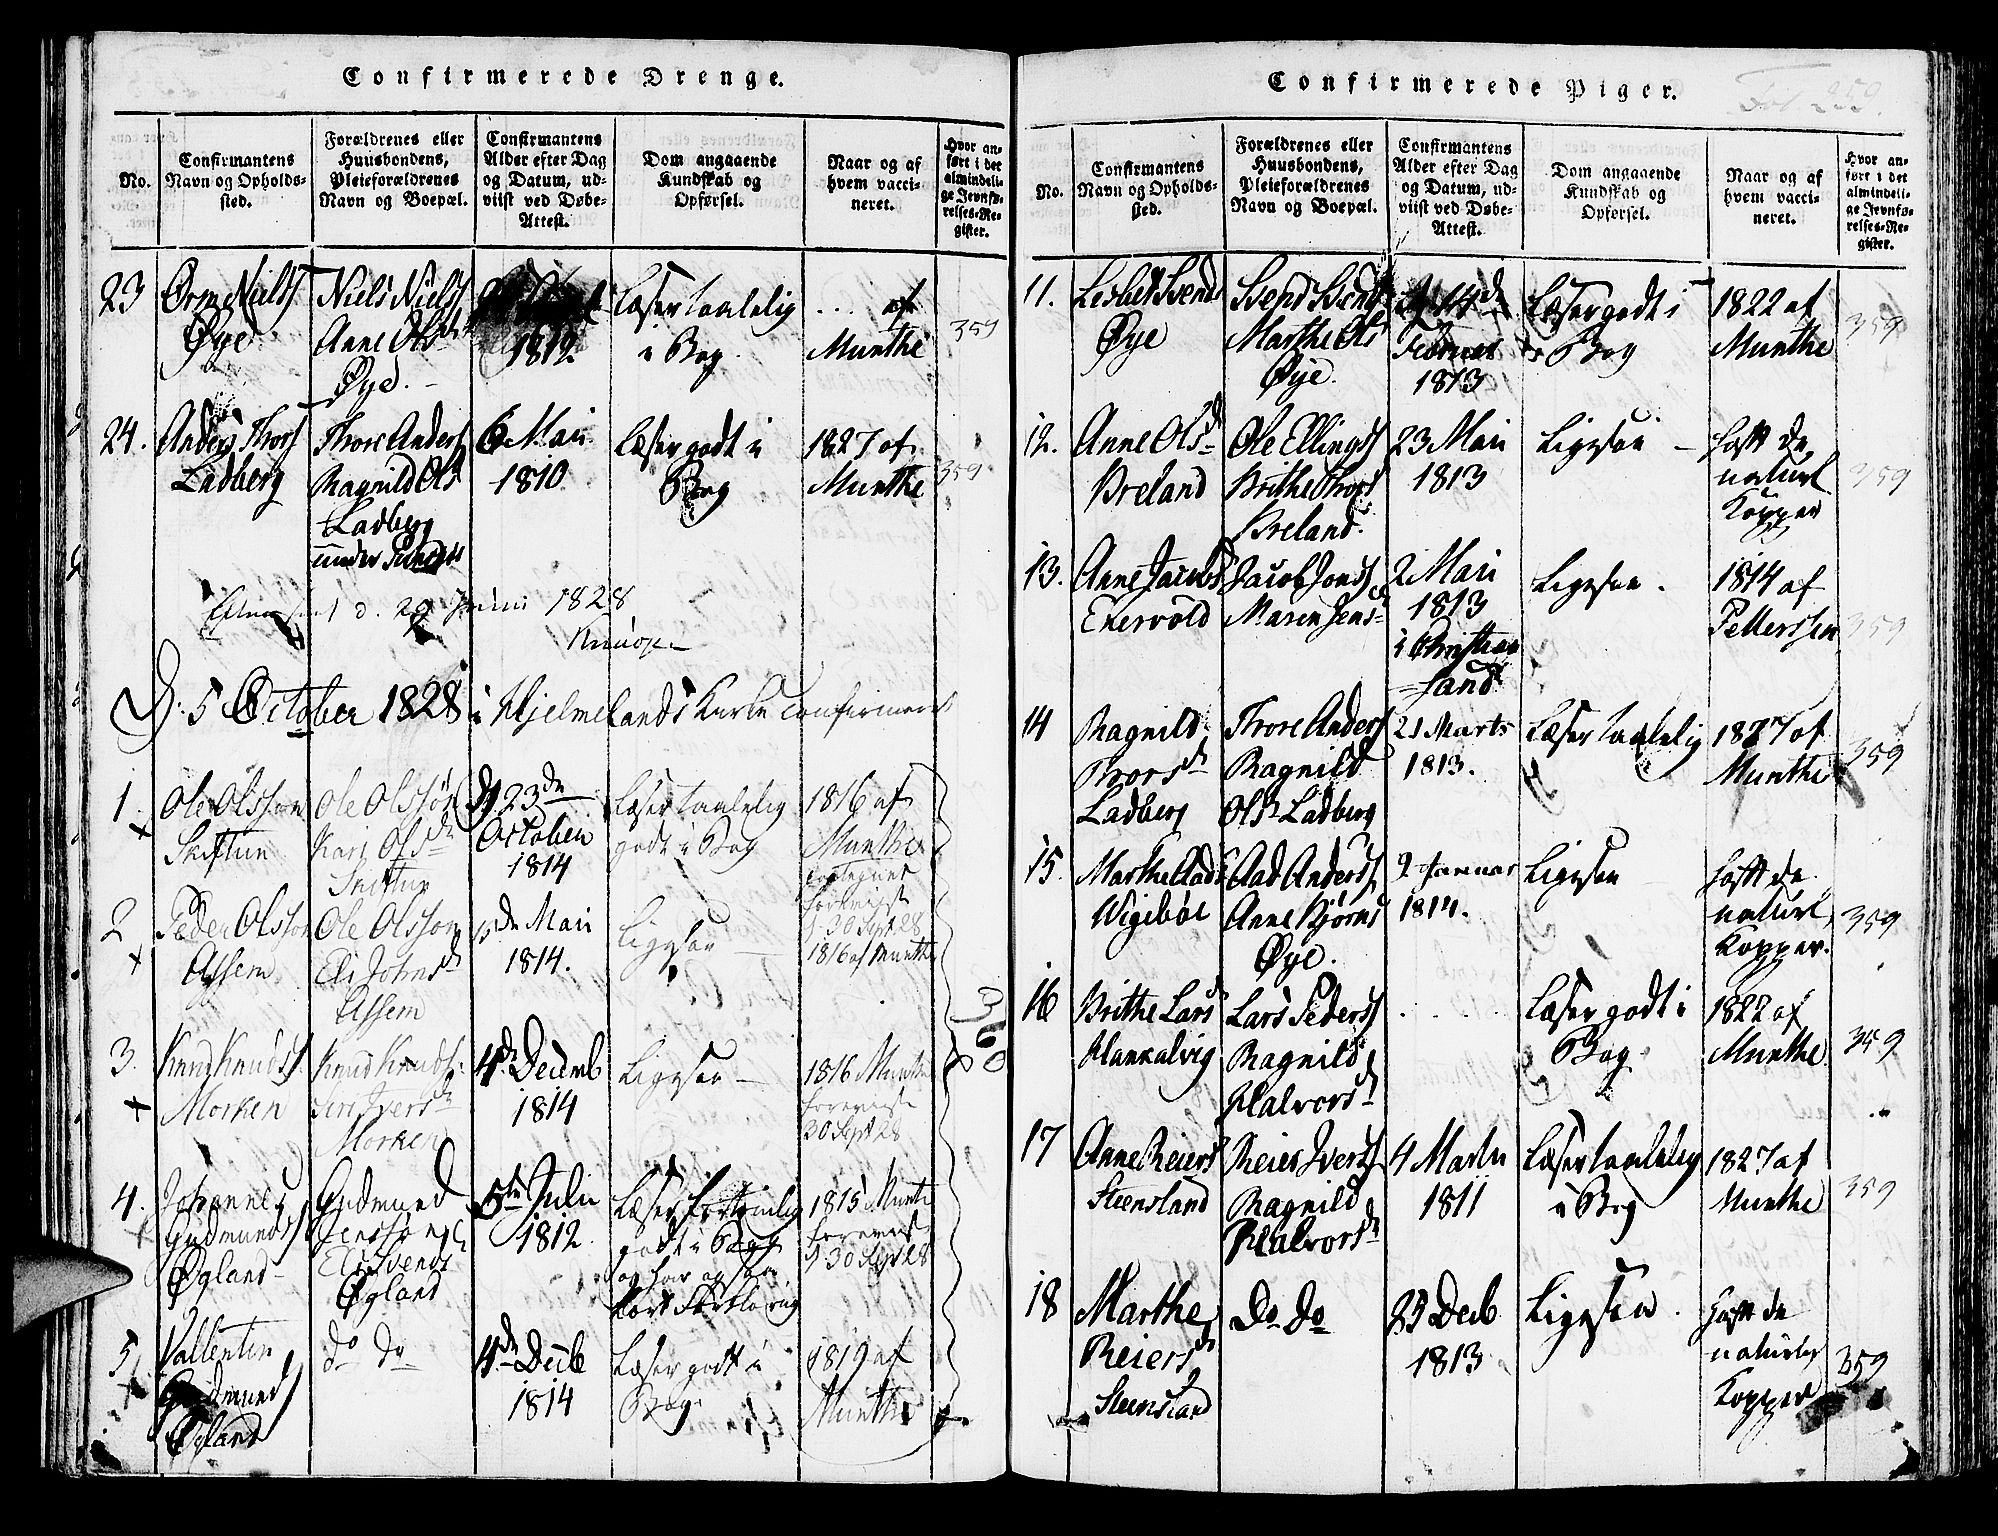 Confirmerede Drenge.
No.
Confirmantens
Navn og Opholds-
sted.
Forældrenes eller
Huusbondens,
Pleieforældrenes
Navn og Boepæl.
Confirmantens
Alder efter Dag
og Datum, ud-
viist ved Døbe-
Attest.
Dom angaaende
Kundskab og
Opførsel.
Naar og af
hvem vacci-
neret.
Hvor an-
ført i det
almindeli-
ge Jevnfø-
relses-Re-
gister.
23
Orm Niels
Øye
Niels Niels
Anne Ols
Øye.
1812
læser taalelig
i Bog
... af
Munthe
359
24.
Anders Thors
Ladberg
Thore Anders
Ragnild Ols
Ladberg
under
6 Mai
1810
læser godt i
Bog
1827 af
Munthe
359
d. 29 Juni 1828
D. 5 October 1828 i Hjelmelands Kirke Confirmeret
1.
Ole Olsson
Skiftun
Ole Olssøn
Kari Olsd
Skiftun
d 23de
October
1814
læser taalelig
godt i Bog
1816 af
Munthe
forevist
d 30 Sept 28
2
Peder Olsson
Assem
Ole Olsson
Eli Johns
Assem
Mai
1814.
Ligesaa
1816 af Munthe
3.
Knud Knuds
Morken
Knud Knuds
Siri Ivers
Morken
4de Decemb
1814
Ligesaa
1816 Munthe
forevist
30 Sept 28
360
4.
Johannes
Gudmunds
Øgland
Gudmund
Jenssøn
Eli Svends
Øgland
5te Julii
1812.
Læser
godt i Bog
og har og
1815 Munthe
forevist
d 30 Sept 28
5
Vallentin
Gudmund
Øgland
do do
4de Decb
1814
Læser godt i
Bog
1819 af
Munthe
Confirmerede Piger.
Fol. 359.
No.
Confirmantens
Navn og Opholds-
sted.
Forældrenes eller
Huusbondens,
Pleieforældrenes
Navn og Boepæl.
Confirmantens
Alder efter Dag
og Datum, ud-
viist ved Døbe-
Attest.
Dom angaaende
Kundskab og
Opførsel.
Naar og af
hvem vacci-
neret.
Hvor an-
ført i det
almindeli-
ge Jevnfø-
relses-Re-
gister.
11.
Lisbet Svends
Øye
Svend Svends
Marthe Ols
Øye.
1813
Læser godt i
Bog
1822 af
Munthe
359
12.
Anne Olsd
Breland
Ole Ellings
Brithe Thors
Breland.
23 Mai
1813
Ligesaa
haft de
naturl
Kopper
359
13.
Anne Jacobs
Enervold
Jacob Jons
Maren Jens
2 Mai
1813
i Christian
sand
Ligesaa.
1814 af
Pettersen
359
14
Ragnild
Thorsd
Ladberg
Thore Anders
Ragnild
Olsd Ladberg
21 Marts
1813.
Læser taalelig
1827 af
Munthe
359
15.
Marthe Aads
Wigebøe
Aad Anders
Anne Bjørns
Øye.
9 Januar
1814.
Ligesaa
haft de
naturl
Kopper.
359
16
Brithe Lars
Hankalvig
Lars Peders
Ragnild
Halvorsd
.....
Læser godt i
Bog
1822 af
Munthe
359
17
Anne Reiers
Steensland
Reier Iverts
Ragnild
Halvorsd
4 Marts
1811
Læser taalelig
i Bog
1827 af
Munthe
359
18
Marthe
Reiersd
Steensland
Do Do
23 Decb
1813
Ligesaa.
haft de
naturlig
Kopper
359